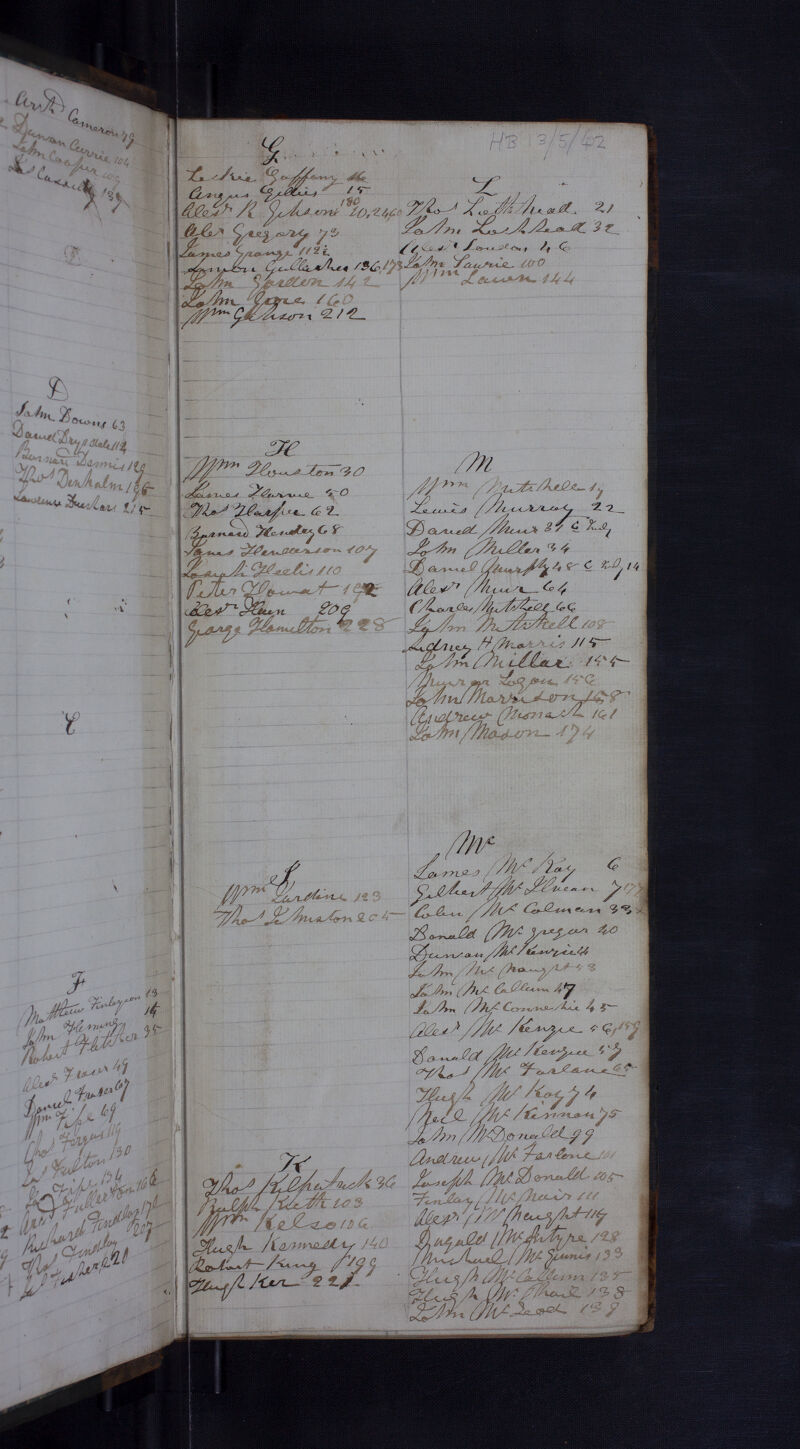 Cameron 79
Duncan Currie 104
John Cooper 109
Jas Cassidy 139
D
John Downs 63
David Drysdale 114
Bernard Dennis 129
Thos Denholm 196
Lawrence 215
E
F
Matthew Finlayson 13
John Fleming 14
Robert Fletcher 35
Alexr Fraser 49
Daniel Fraser 67
Wm Fife 69
Thos Fergus 119
Jas Fulton 130
Jas Fife 134
Archd Fullerton 166
Richard Findlay 172
Thos Findlay 207
Jas Fisher 220
HB 13/5/42
G
Gaffeny
Angus Gillies 15
Alexr R Gibson
Alexr Gregory 73
James Grange 112
Gallacher 136, 173
John Gordon 142
John 160
Wm Gibson 212
H
Wm Houston 30
James Harvie 50
Thos Harper 62
Bernard Hendry 68
James Henderson 107
Joseph Heelis 110
Peter Howat 192
Alexr 209
George Hamilton 228
J
Wm Jardine 123
Thos Johnston 205
K
Thos Kilpatrick 36
Ralph Keith 103
Wm Kelso 106
Hugh Kennedy 140
Robert King 199
Hugh Ker 221
L
Thos Leethhead 21
John Lockhead 32
Alexr Loudon 46
John Laurie 100
Wm 144
M
Wm Mitchell 19
Lewis Murray 22
David Muir 31
John Miller 34
Daniel Murphy 48
Alexr Muir 64
Charles Mitchell 66
John Mitchell 108
Sidney H Morris 115
John Millar 155
Logan 156
John Morrison 158
Andrew Monach 161
John Mason 174
Mc
James McKay 6
Gilbert McIlvean
Colin McColman 33
Donald McGregor 40
Duncan McKenzie
John McNaught 53
John McCallum 47
John McConnechie 45
Alexr McKenzie 56, 159
Donald McKenzie 57
Thos McFarlane 65
Hugh McKay 74
Neil McKinnon 75
John McDonald 99
Andrew McFarlane 101
Joseph McDonald 105
Finlay McNair 111
Alexr McNaught 119
Dugald McIntyre 128
Michael McGinnis 133
Hugh McCallum 135
Hugh McPhail 138
John McLeod 139